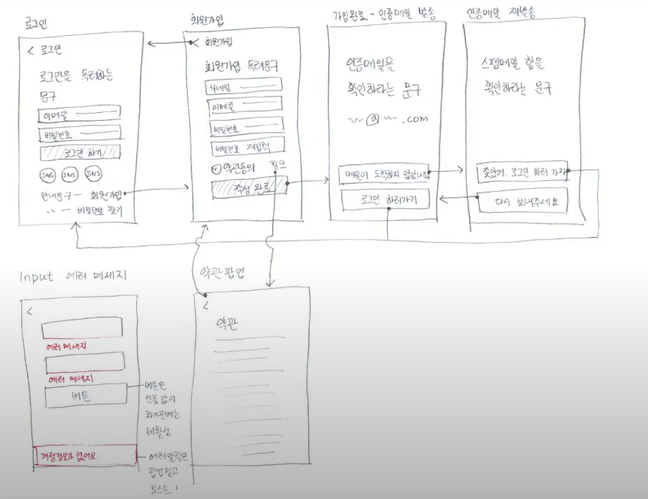 로그인
< 로그인
로그인을 독려하는
문구
이메일
비밀번호
로그인 하기
SNS SNS SNS
안내문구 - 회원가입
비밀번호 찾기
회원가입
< 회원가입
회원가입 독려문구
이메일
비밀번호
비밀번호 재입력
약관동의 링크
작성 완료
가입완료 - 인증메일 발송
인증메일을
확인하라는 문구
@ .com
메일이 도착하지 않았나요
로그인 하러가기
인증메일 재발송
스팸메일 함을
확인하라는 문구
찾았어요. 로그인 하러 가기
다시 보내주세요
Input 에러 메세지
<
에러 메세지
에러 메세지
버튼
버튼은
인풋 값이
비활성
계정정보가 없어요.
에러알림은
팝업말고
토스트!
약관팝업
<
약관